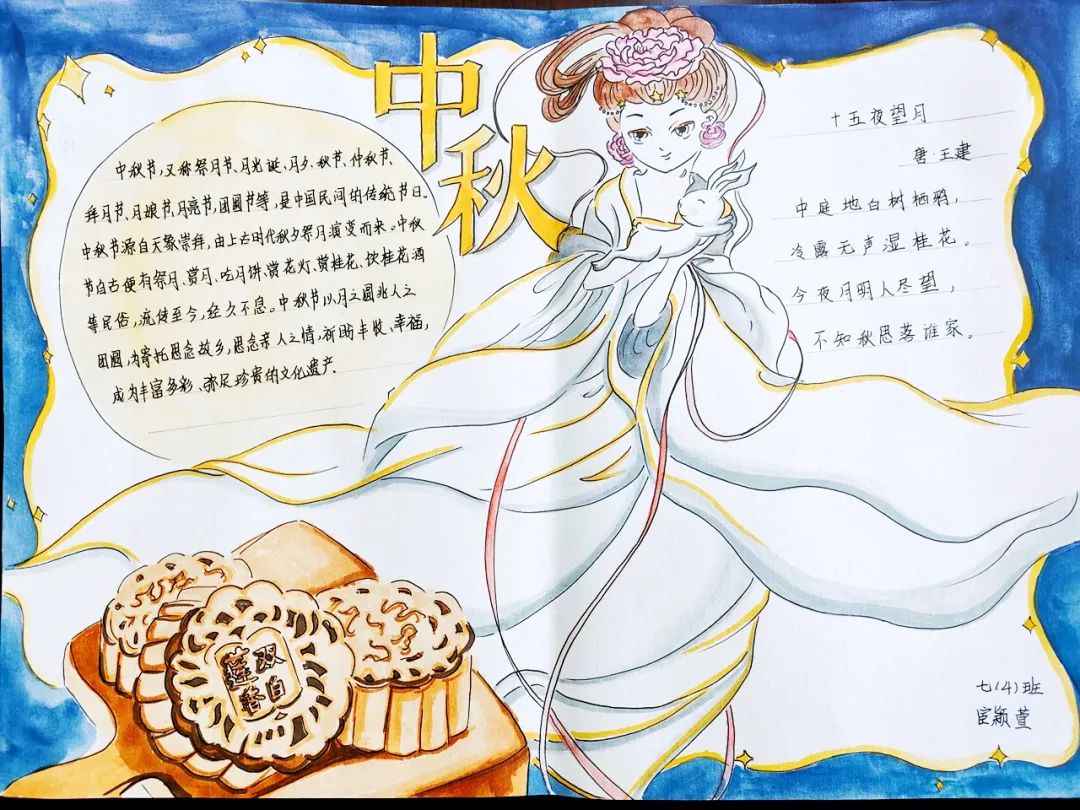 中秋
中秋节,又称祭月节、月光诞、月夕、秋节、仲秋节、
拜月节、月娘节、月亮节、团圆节等,是中国民间的传统节日。
中秋节源自天象崇拜,由上古时代秋夕祭月演变而来。中秋
节自古便有祭月、赏月、吃月饼、赏花灯、赏桂花、饮桂花酒
等民俗,流传至今,经久不息。中秋节以月之圆兆人之
团圆,为寄托思念故乡,思念亲人之情,祈盼丰收、幸福,
成为丰富多彩、弥足珍贵的文化遗产.
十五夜望月
唐·王建
中庭地白树栖鸦,
冷露无声湿桂花。
今夜月明人尽望,
不知秋思落谁家。
双白
莲蓉
七(4)班
宦颖萱